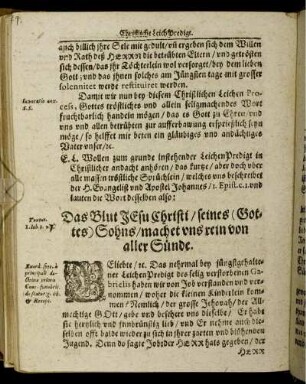 Christliche Leich Predigt.
auch billich ihre Sele mit gedult / vñ ergeben sich dem Willen
vnd Rath deß HERRN die betrübten Eltern / vnd getrösten
sich dessen / das ihr Töchterlein wol versorget / bey dem lieben
Gott / vnd das ihnen solches am Jüngsten tage mit grosser
solennitet werde restituiret werden.
Damit wir nun bey diesem Christlichen Leichen Pro-
cess, Gottes tröstliches vnd allein seligmachendes Wort
fruchtbarlich handeln mögen / das es Gott zu Ehren / vnd
vns vnd allen betrübten zur aufferbawung ersprießlich seyn
möge / so helffet mit beten ein gläubiges vnd andächtiges
Vater vnser / etc.
E. L. Wollen zum grunde instehender Leichen Predigt in
Christlicher andacht anhören / das kurtze / aber doch vber
alle massen tröstliche Sprüchlein / welches vns beschreibet
der H. Evangelist vnd Apostel Johannes / 1. Epist. c. 1. vnd
lauten die Wort desselben also:
Das Blut JEsu Christi / seines (Got-
tes) Sohns / machet vns rein von
aller Sünde.
GEliebte / etc. Das nehrmal bey jüngstgehalte-
ner Leichen Predigt des selig verstorbenen Ga-
brielis haben wir von Job verstanden vnd ver-
nommen / woher die kleinen Kinderlein kom-
men / Nemlich / der grosse Jehovah / der All-
mechtige GOtt / gebe vnd beschere vns dieselbe /
sie hertzlich vnd innbrünstig lieb / vnd Er nehme auch die-
selbe
Jugend. Denn do sagte Job der HERR hats gegeben / der
HERR